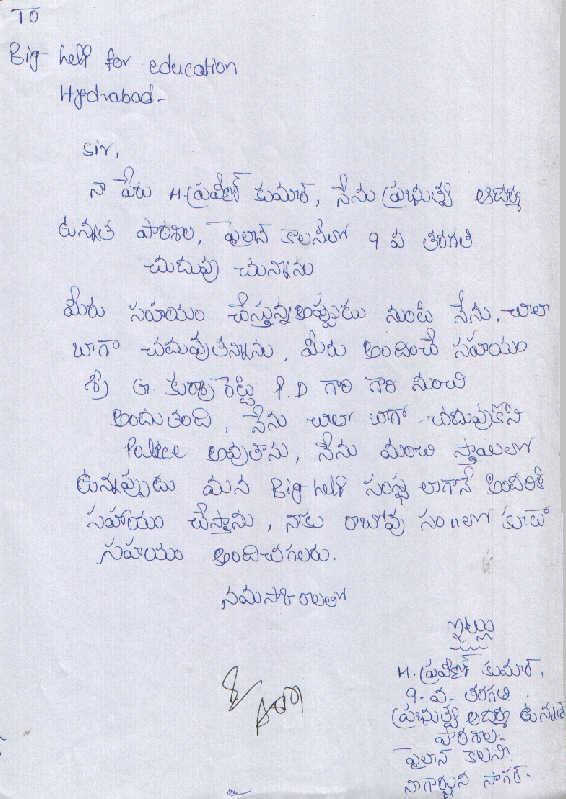 To
Big help for education
Hydrabad-
Sir,
నా పేరు H. ప్రవీణ్ కుమార్, నేను ప్రభుత్వ ఆదర్శ
ఉన్నత పాఠశాల, పైలాన్ కాలనీలో 9 వ తరగతి
చదువు చున్నాను
మీరు సహయం చేస్తున్నఅప్పుడు నుంటి నేను. చాలా
బాగా చదువుతన్నాను, మీరు అందించే సహయం
శ్రీ G. రెడ్డి P.D గారి గారి నుంచి
అందుతంది, నేను చాలా బాగా చదువుకొని
Police అవుతాను, నేను మంచి స్తాయిలో
ఉన్నప్పుడు మన Big help సంస్థ లాగానే
సహాయం చేస్తాను, నాకు రాబోవు సం॥లలో కూడా
సహయం అందించగలరు.
నమస్కారాలతో
ఇట్లు
H. ప్రవీణ్ కుమార్,
9-వ-తరగతి
ప్రభుత్వ ఆదర్శ ఉన్నత
పాఠశాల-
పైలాన్ కాలని
నాగార్జున సాగర్.